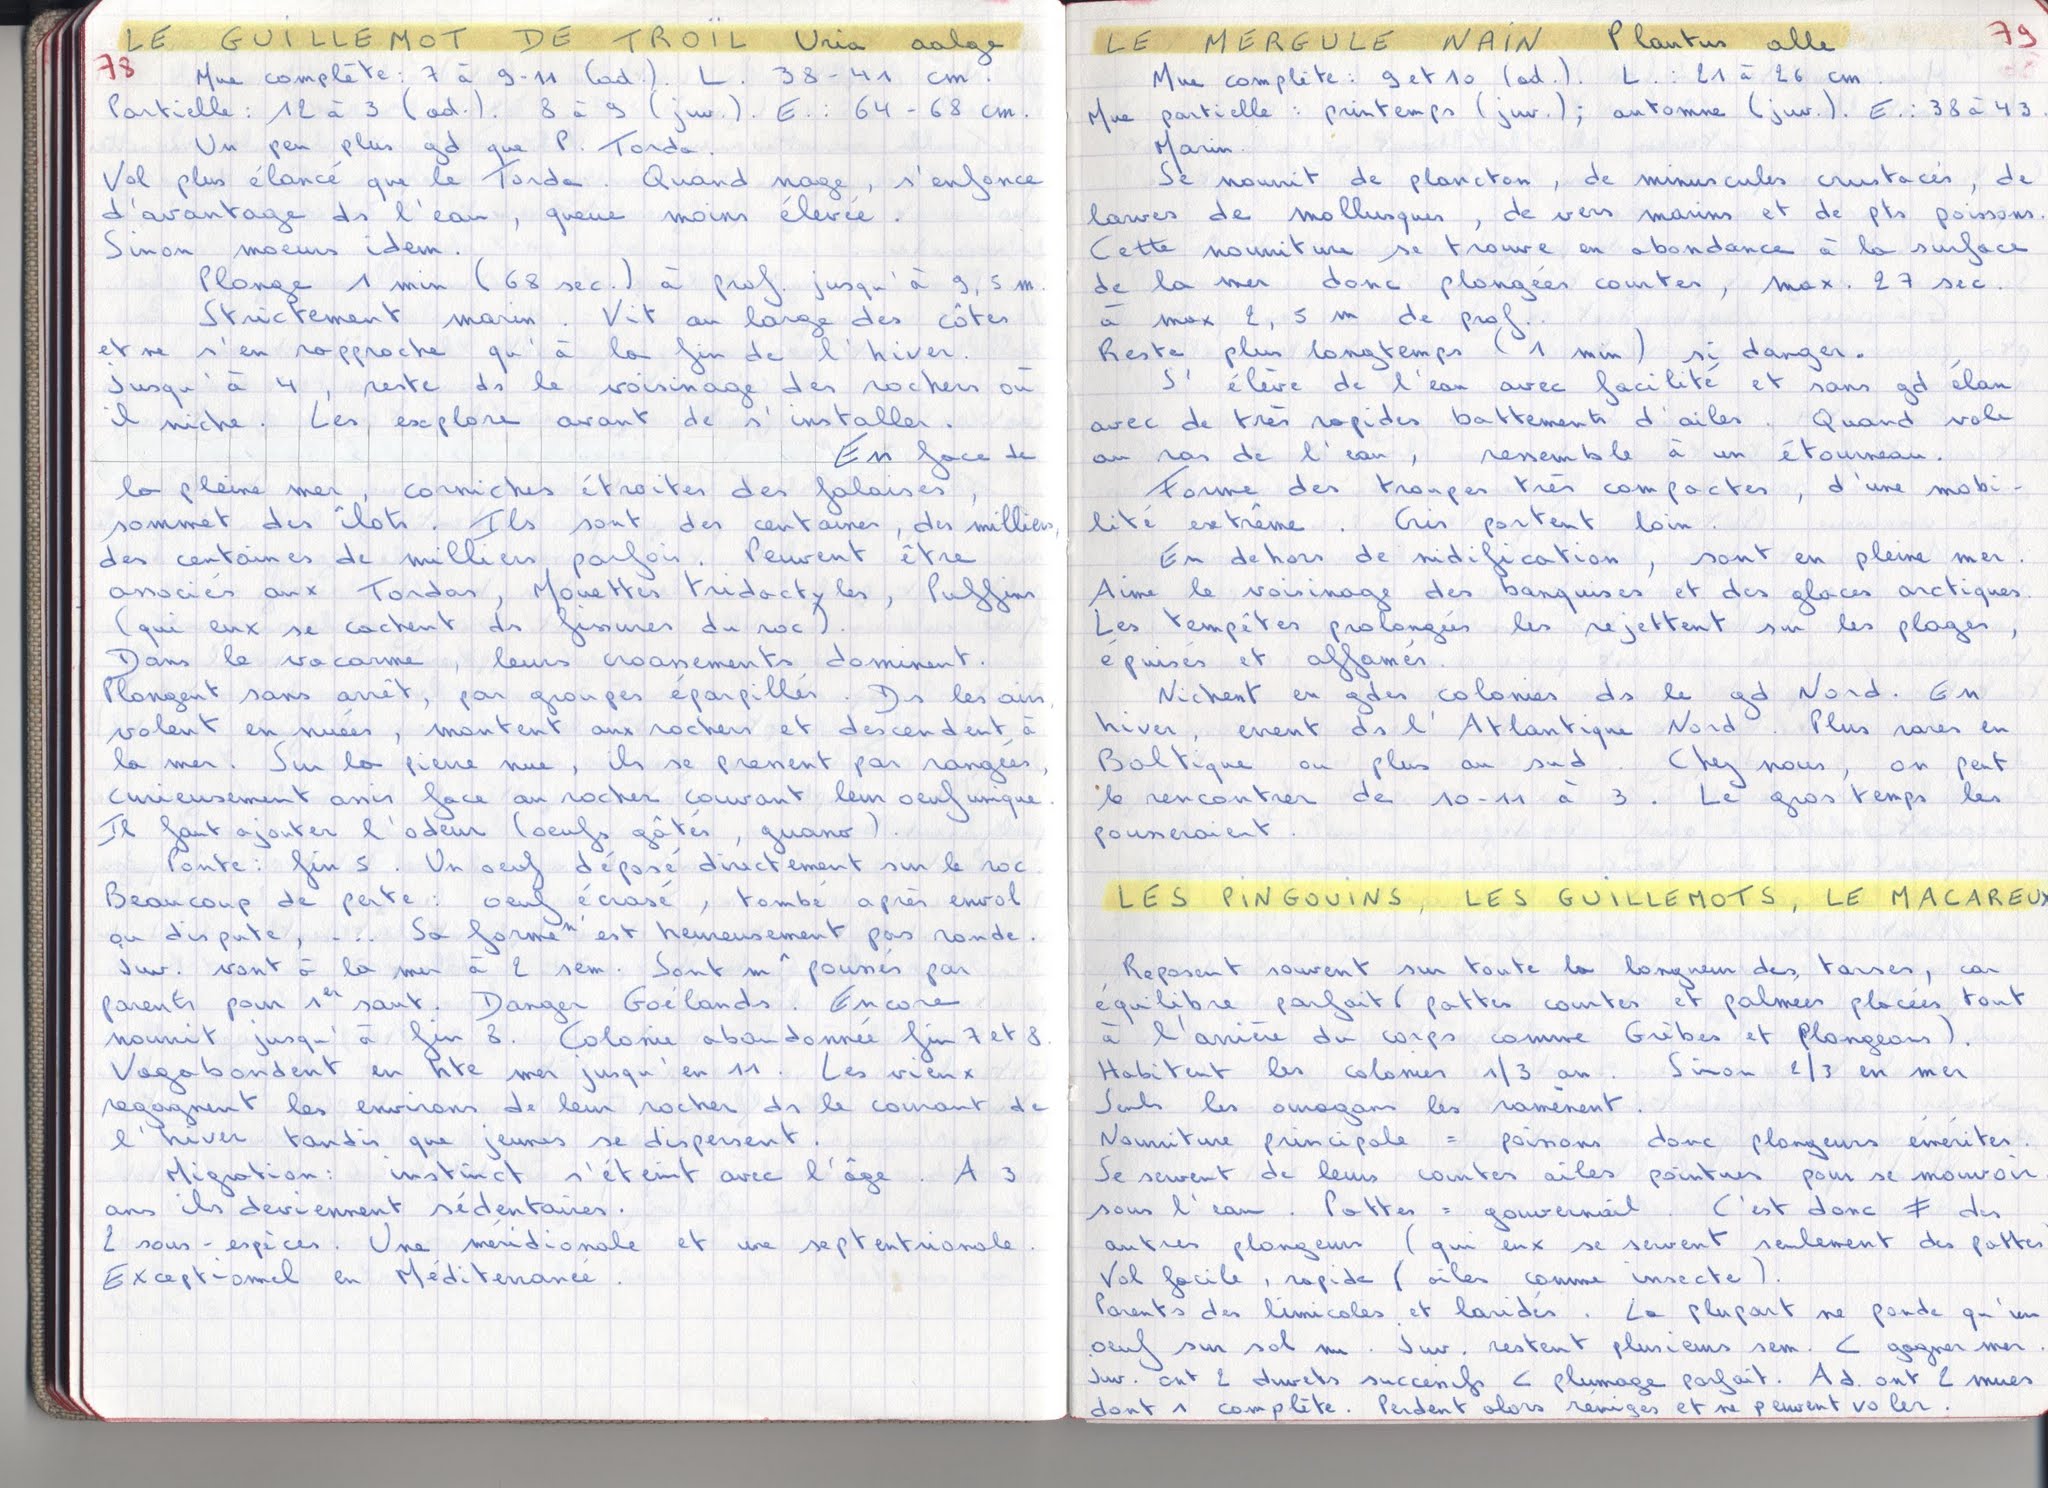 LE GUILLEMOT DE TROÏL Uria aalge
78
Mue complète : 7 à 9-11 (ad.). L. 38-41 cm.
Partielle : 12 à 3 (ad.). 8 à 9 (juv.). E. : 64-68 cm.
Un peu plus gd que P. Torda.
Vol plus élancé que le Torda. Quand nage, s'enfonce
d'avantage ds l'eau, queue moins élevée.
Sinon moeurs idem.
Plonge 1 min (68 sec.) à prof. jusqu'à 9,5 m.
Strictement marin. Vit au large des côtes
et ne s'en rapproche qu'à la fin de l'hiver.
Jusqu'à 4, reste ds le voisinage des rochers où
il niche. Les explore avant de s'installer.
En face de
la pleine mer, corniches étroites des falaises,
sommet des îlots. Ils sont des centaines, des milliers,
des centaines de milliers parfois. Peuvent être
associés aux Tordas, Mouettes tridactyles, Puffins
(qui eux se cachent ds fissures du roc).
Dans le vacarme, leurs croassements dominent.
Plongent sans arrêt, par groupes éparpillés. Ds les airs,
volent en nuées, montent aux rochers et descendent à
la mer. Sur la pierre nue, ils se pressent par rangées,
curieusement assis face au rocher couvant leur oeuf unique.
Il faut ajouter l'odeur (oeufs gâtés, guano).
Ponte : fin 5. Un oeuf déposé directement sur le roc.
Beaucoup de perte : oeuf écrasé, tombé après envol
ou dispute, ... Sa forme n'est heureusement pas ronde.
Juv. vont à la mer à 2 sem. Sont m^ poussés par
parents pour 1er saut. Danger Goélands. Encore
nourrit jusqu'à fin 8. Colonie abandonnée fin 7 et 8.
Vagabondent en hte mer jusqu'en 11. Les vieux
regagnent les environs de leur rocher ds le courant de
l'hiver tandis que jeunes se dispersent.
Migration : instinct s'éteint avec l'âge. A 3
ans ils deviennent sédentaires.
2 sous-espèces. Une méridionale et une septentrionale.
Exceptionnel en Méditerranée.
LE MERGULE NAIN Plautus alle
79
Mue complète : 9 et 10 (ad.). L. : 21 à 26 cm.
Mue partielle : printemps (juv.) ; automne (juv.). E. : 38 à 43.
Marin.
Se nourrit de plancton, de minuscules crustacés, de
larves de mollusques, de vers marins et de pts poissons.
Cette nourriture se trouve en abondance à la surface
de la mer donc plongées courtes, max. 27 sec.
à max 2,5 m de prof..
Reste plus longtemps (1 min) si danger.
S'élève de l'eau avec facilité et sans gd élan
avec de très rapides battements d'ailes. Quand vole
au ras de l'eau, ressemble à un étourneau.
Forme des troupes très compactes, d'une mobi-
lité extrême. Cris portent loin.
En dehors de nidification, sont en pleine mer.
Aime le voisinage des banquises et des glaces arctiques.
Les tempêtes prolongées les rejettent sur les plages,
épuisés et affamés.
Nichent en gdes colonies ds le gd Nord. En
hiver, errent ds l'Atlantique Nord. Plus rares en
Baltique ou plus au sud. Chez nous, on peut
le rencontrer de 10-11 à 3. Le gros temps les
pousseraient.
LES PINGOUINS, LES GUILLEMOTS, LE MACAREUX
Reposent souvent sur toute la longueur des tarses, car
équilibre parfait (pattes courtes et palmées placées tout
à l'arrière du corps comme Grèbes et Plongeons).
Habitent les colonies 1/3 an. Sinon 2/3 en mer
Seuls les ouragans les ramènent.
Nourriture principale = poissons donc plongeurs émérites.
Se servent de leurs courtes ailes pointues pour se mouvoir
sous l'eau. Pattes = gouvernail. C'est donc ≠ des
autres plongeurs (qui eux se servent seulement des pattes)
Vol facile, rapide (ailes comme insecte).
Parents des limicoles et laridés. La plupart ne ponde qu'un
oeuf sur sol nu. Juv. restent plusieurs sem. < gagner mer.
Juv. ont 2 duvets successifs < plumage parfait. Ad. ont 2 mues
dont 1 complète. Perdent alors rémiges et ne peuvent voler.